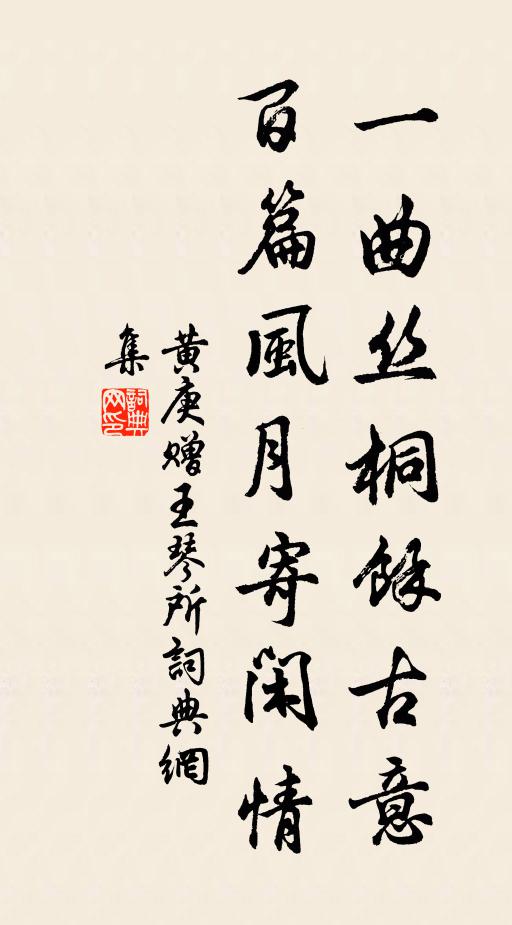 一曲丝桐餘古意
百篇風月寄閑情
黄庚赠王琴所詞典網
集
詞典
网印